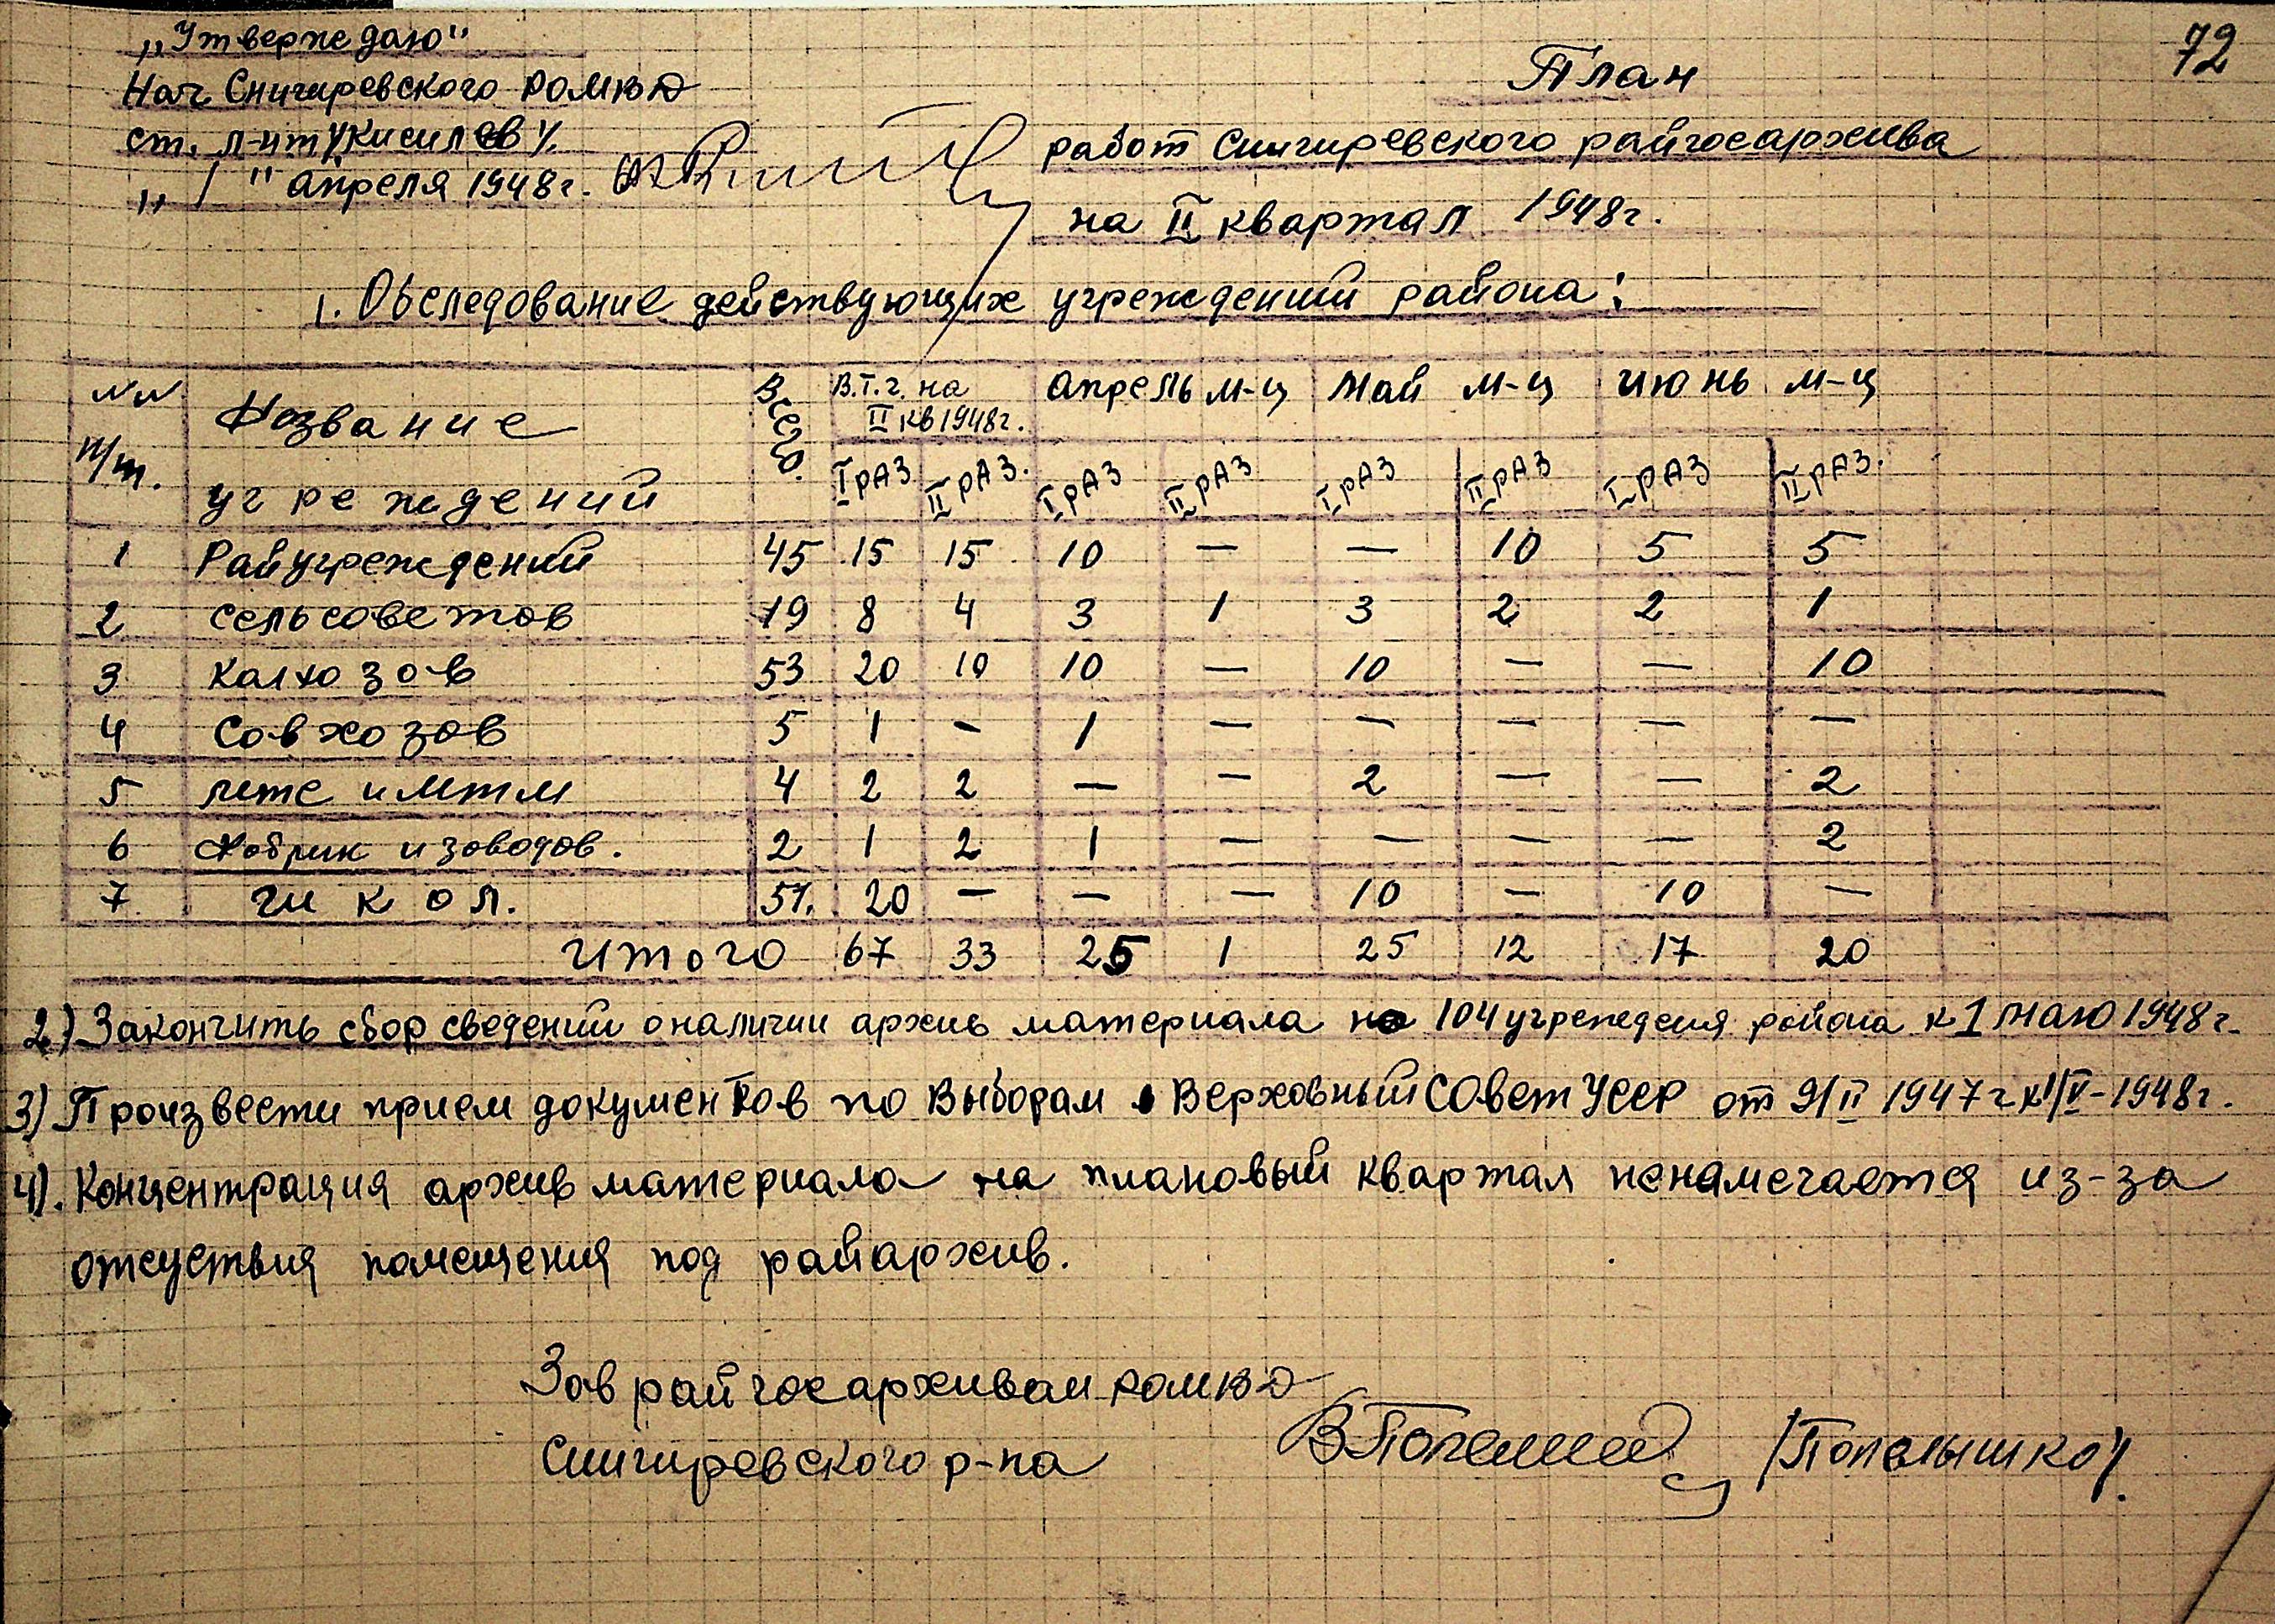 72
„Утверждаю"
Нач. Снигиревского РОМВД
ст. л-нт /Кисилев/.
„ 1 " апреля 1948 г.
План
работ Снигиревского райгосархива
на II квартал 1948 г.
1. Обследование действующих учреждений района:
№№ п/п. Название учреждений Всего. В.т.ч. на II кв 1948г. Апрель м-ц Май м-ц Июнь м-ц
I раз II раз. I раз II раз I раз II раз I раз II раз.
1 Райучреждений 45 15 15 10 — — 10 5 5
2 Сельсоветов 19 8 4 3 1 3 2 2 1
3 Колхозов 53 20 10 10 — 10 — — 10
4 Совхозов 5 1 — 1 — — — — —
5 и МТМ 4 2 2 — — 2 — — 2
6 Фабрик и заводов. 2 1 2 1 — — — — 2
7 школ. 51. 20 — — — 10 — 10 —
Итого 67 33 25 1 25 12 17 20
2.) Закончить сбор сведений о наличии архив материала на 104 учреждения района к 1 маю 1948 г.
3) Произвести прием документов по выборам в Верховный Совет УССР от 9/II 1947 г к 1/V-1948 г.
4). Концентрация архив материала на плановый квартал ненамечается из-за
отсуствия помещения под райархив.
Зав райгосархивам РОМВД
Снигиревского р-на /Попелышко/.